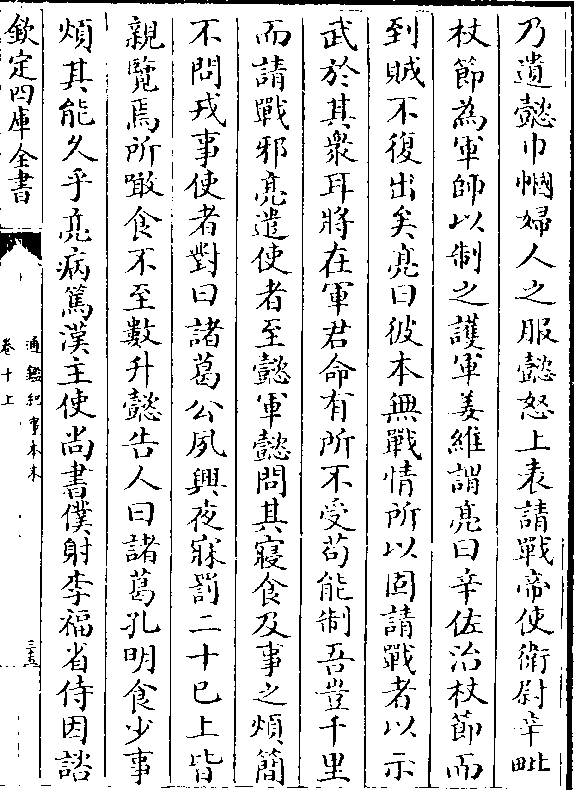 乃遺懿巾幗婦人之服懿怒上表請戰帝使衛尉辛毗
杖節為軍師以制之護軍姜維謂亮曰辛佐治杖節而
到賊不復出矣亮曰彼本無戰情所以固請戰者以示
武於其衆耳將在軍君命有所不受苟能制吾豈千里
而請戰邪亮遣使者至懿軍懿問其寢食及事之煩簡
不問戎事使者對曰諸葛公夙興夜寐罰二十已上皆
親覽焉所噉食不至數升懿告人曰諸葛孔明食少事
煩其能久乎亮病篤漢主使尚書僕射李福省侍因諮
欽定四庫全書
通鑑紀事本末
卷十上
三五